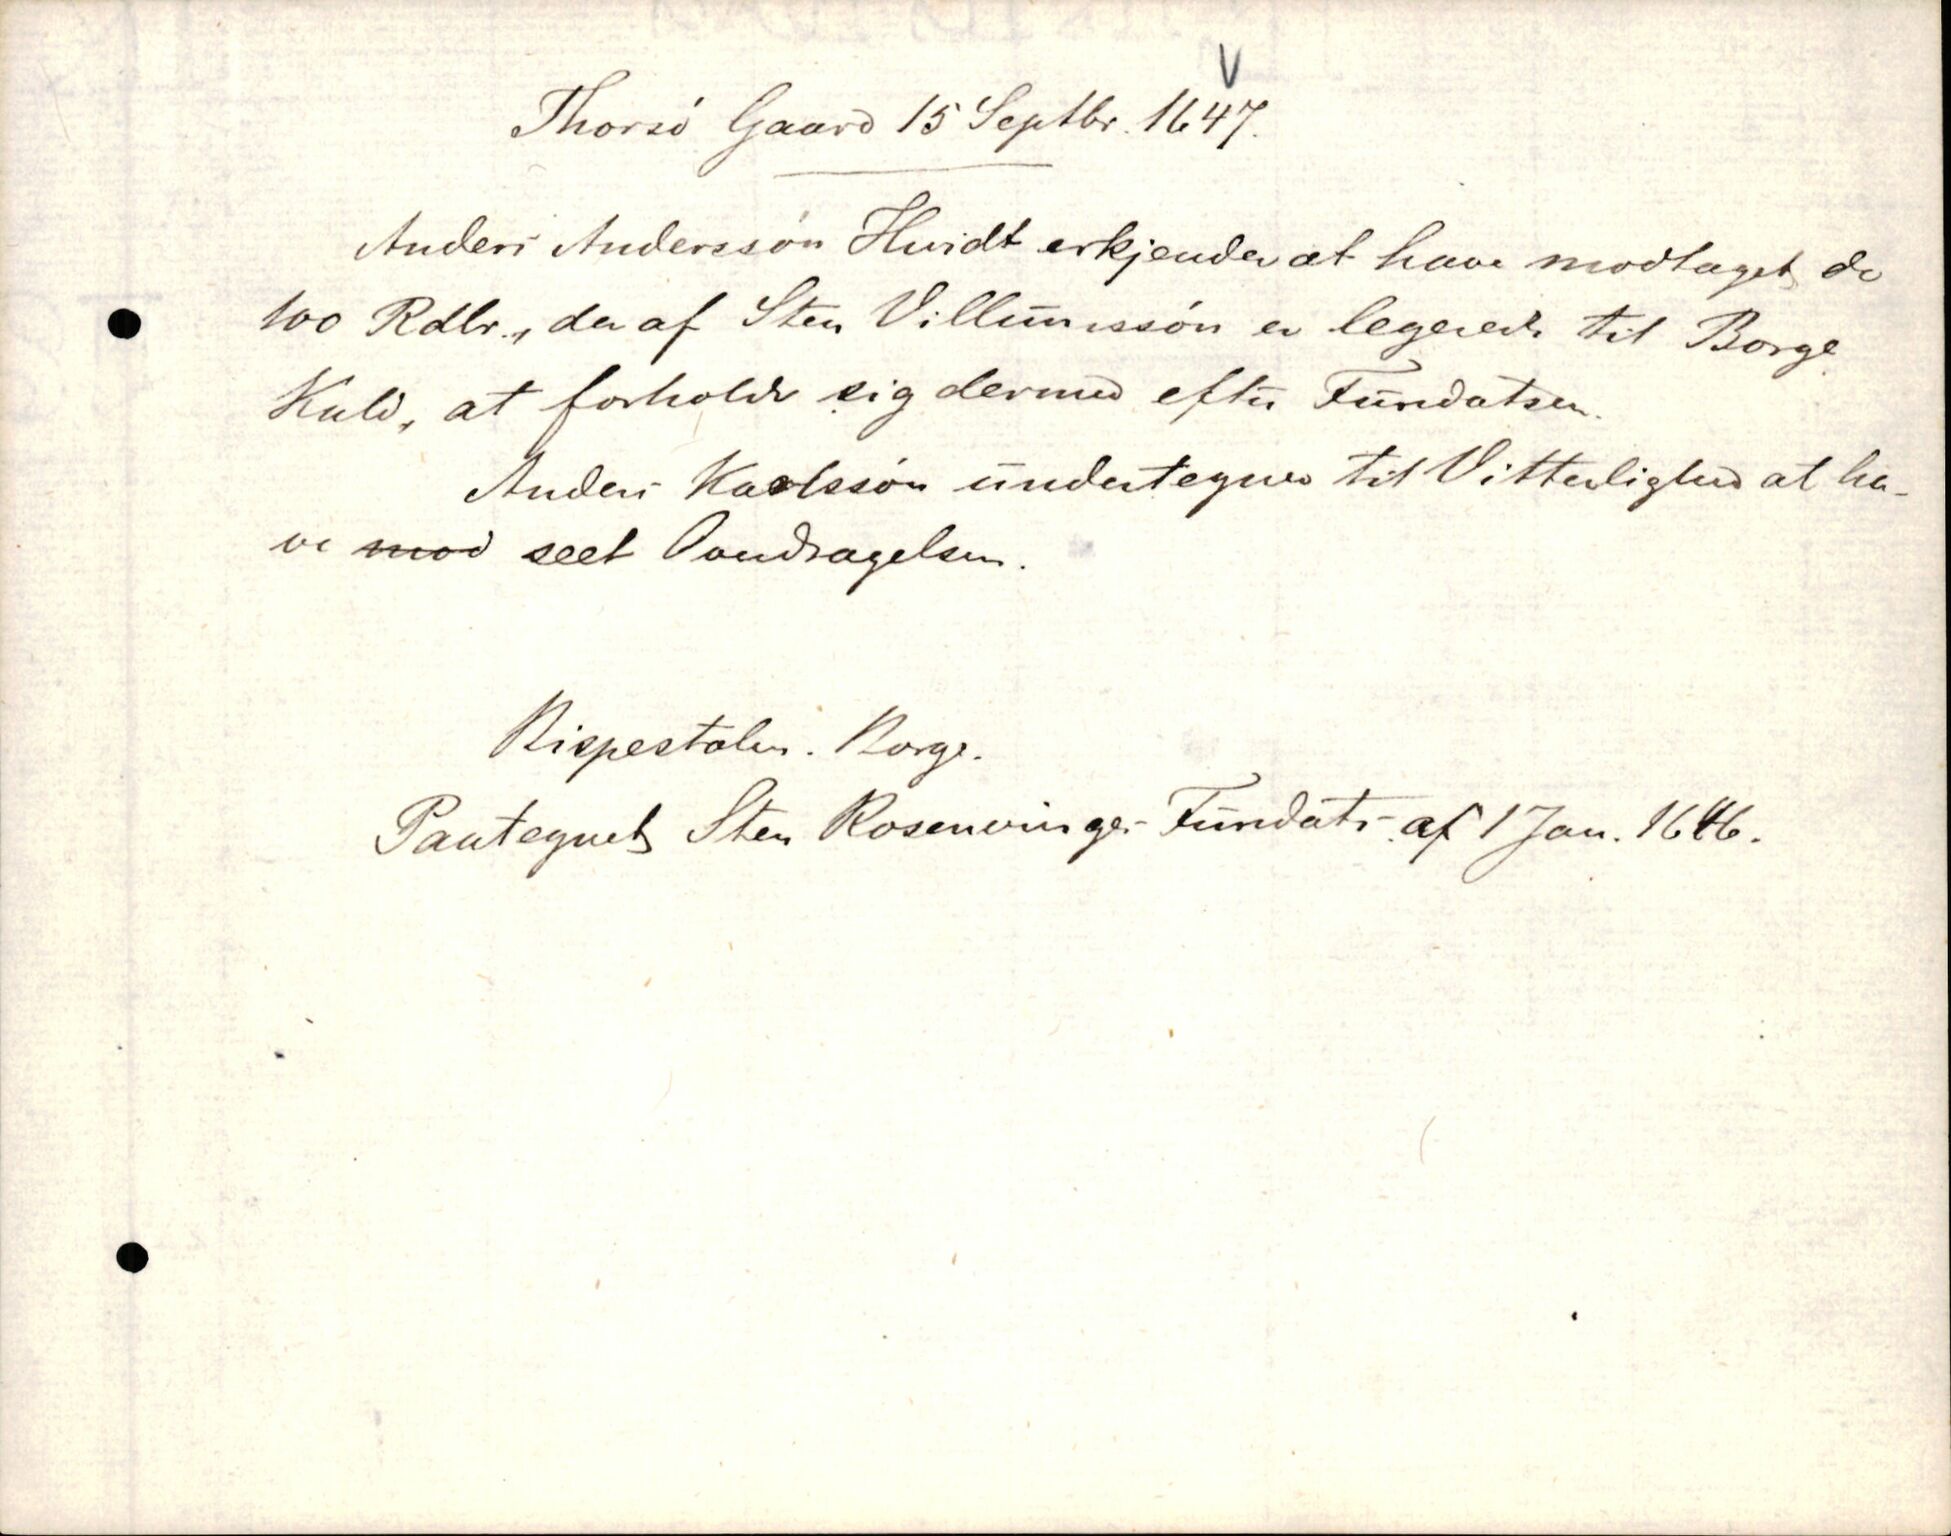 V
Thorsö Gaard 15 Septbr. 1647.
Anders Anderssön Hvidt erkjender at have modtaget de
100 Rdlr., der af Sten Villumssön er legerede til Borge
Kald, at forholde sig dermed efter Fundatsen.
Anders Karlssön undertegner til Vitterlighed at ha-
ve mod seet Ovendragelsen.
Bispestolen. Borge.
Paategnet Sten Rosenvinges Fundats af 1 Jan. 1646.